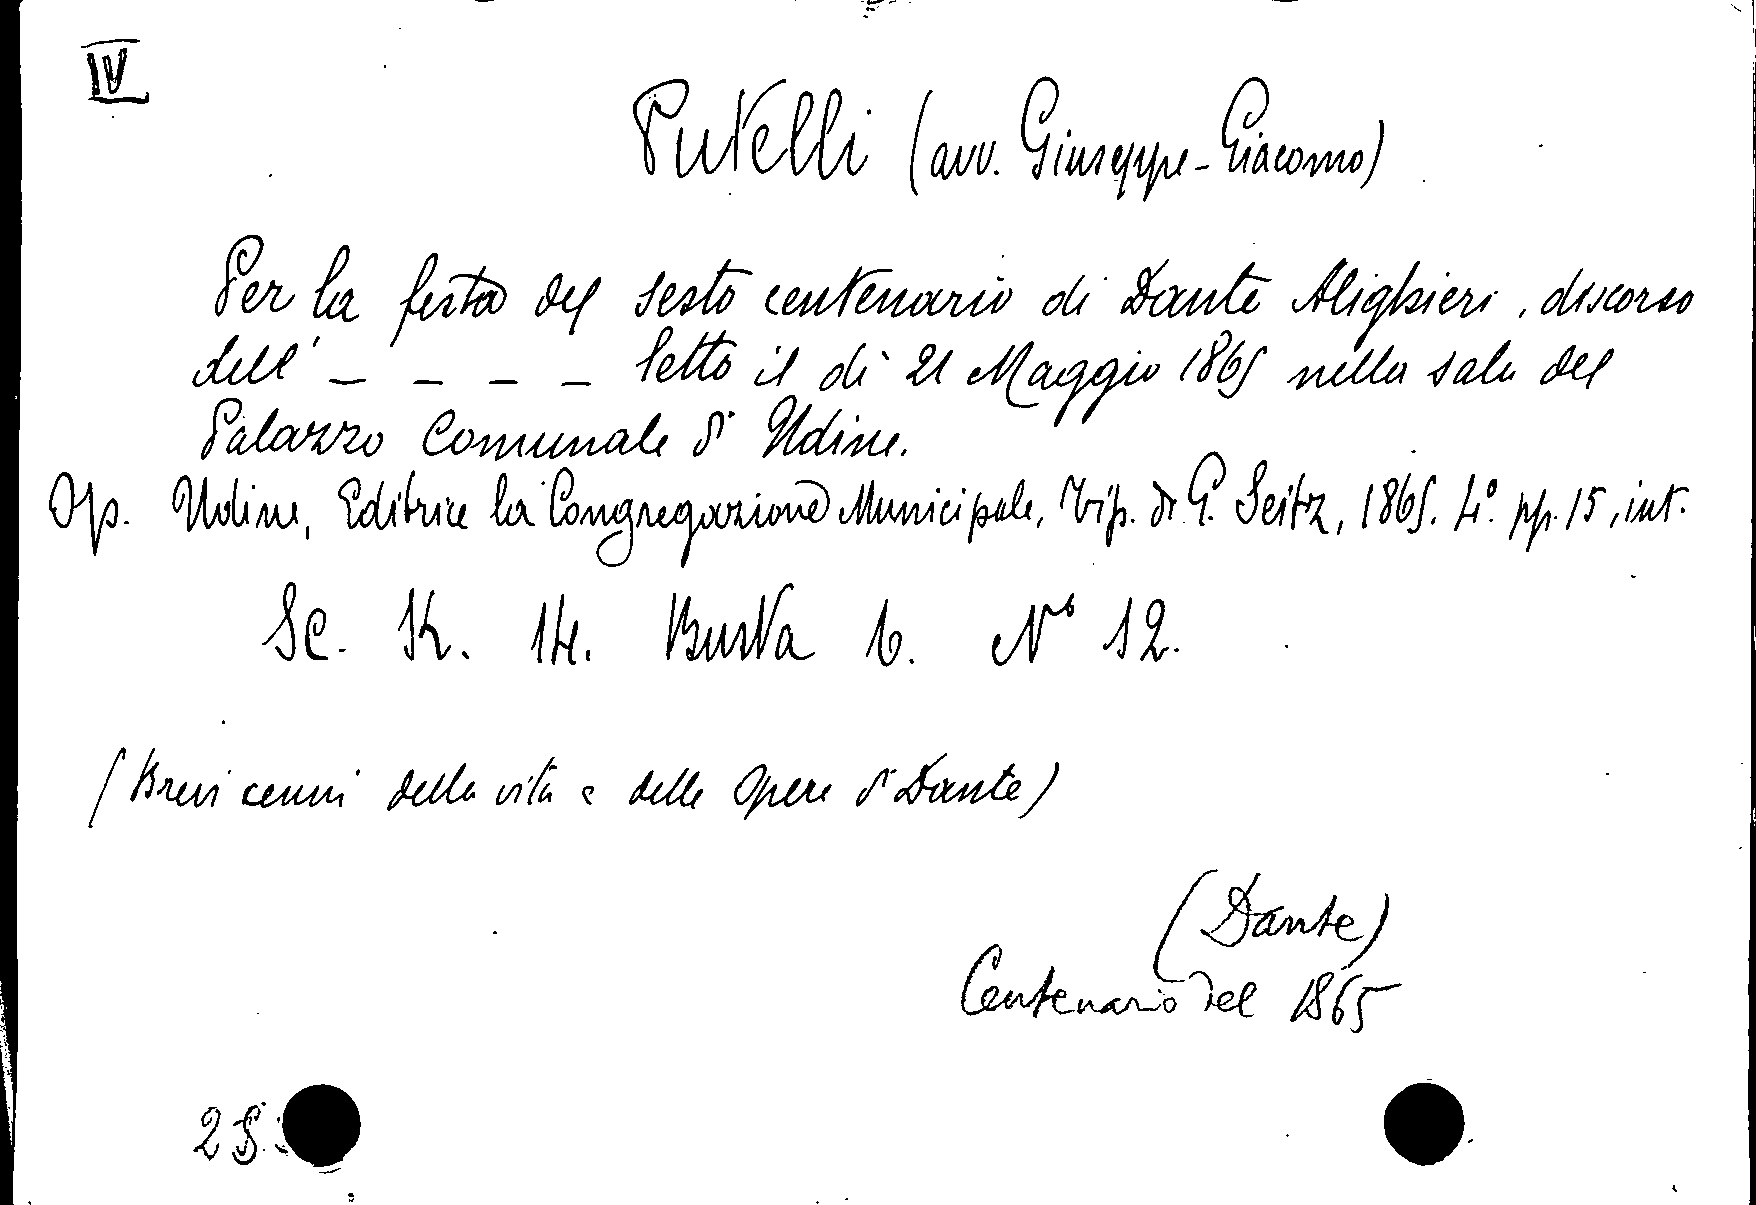 IV
Putelli (avv. Giuseppe-Giacomo)
Per la festa del sesto centenario di Dante Alighieri, discorso
dell' _ _ _ _ letto il dì 21 Maggio 1865 nella sala del
Palazzo Comunale di Udine.
Op. Udine, Editrice la Congregazione Municipale, Tip. di G. Seitz, 1865. 4º. pp. 15, int.
Sc. K. 14. Busta 6. Nº 12.
(Brevi cenni della vita e delle opere di Dante)
(Dante)
Centenario del 1865